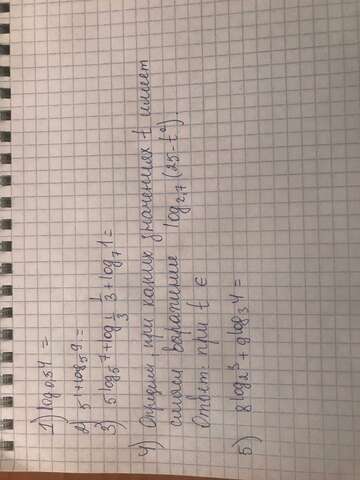 1) log₀,₅4 =
2) 5^(1+log₅9) =
3) 5^(log₅7) + log_(1/3) 3 + log₇1 =
4) Определи, при каких значениях t имеет
смысл выражение log₂,₇(25-t²).
Ответ: при t ∈
5) 8^(log₂3) + 9^(log₃4) =